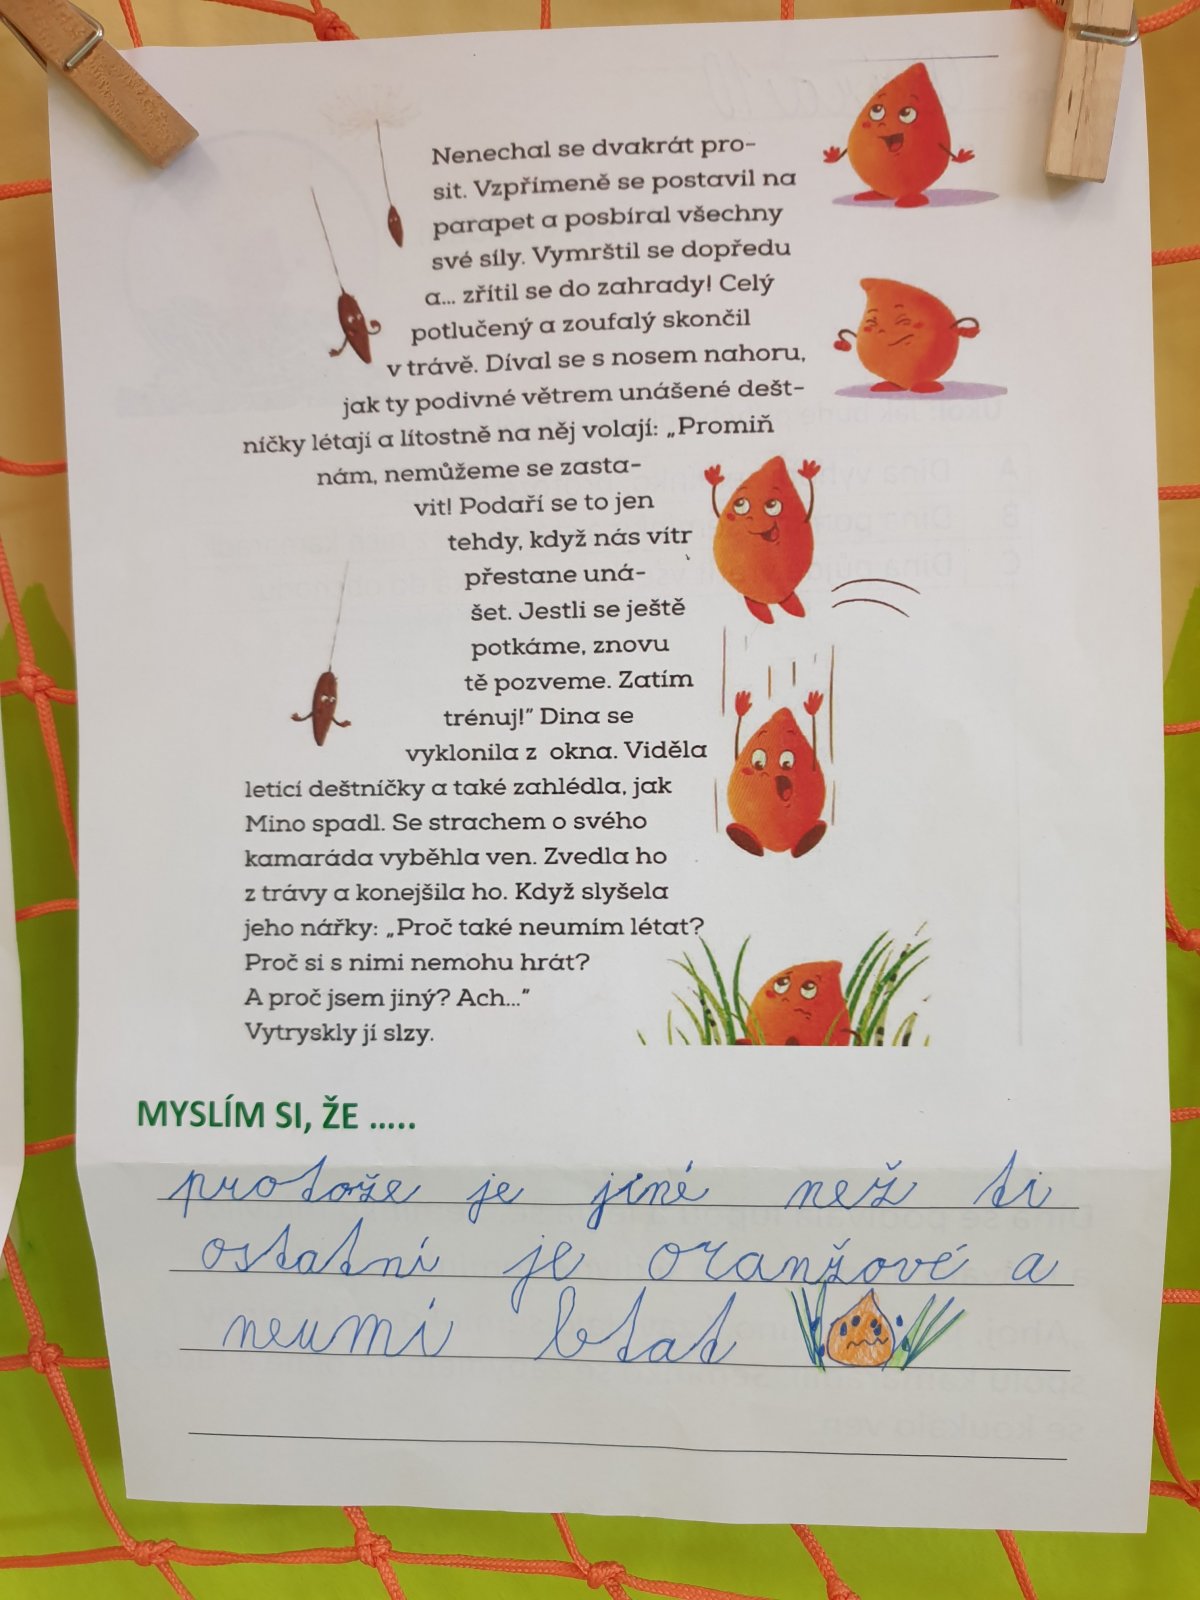 Nenechal se dvakrát pro-
sit. Vzpřímeně se postavil na
parapet a posbíral všechny
své síly. Vymrštil se dopředu
a... zřítil se do zahrady! Celý
potlučený a zoufalý skončil
v trávě. Díval se s nosem nahoru,
jak ty podivné větrem unášené dešt-
níčky létají a lítostně na něj volají: „Promiň
nám, nemůžeme se zasta-
vit! Podaří se to jen
tehdy, když nás vítr
přestane uná-
šet. Jestli se ještě
potkáme, znovu
tě pozveme. Zatím
trénuj!" Dina se
vyklonila z okna. Viděla
letící deštníčky a také zahlédla, jak
Mino spadl. Se strachem o svého
kamaráda vyběhla ven. Zvedla ho
z trávy a konejšila ho. Když slyšela
jeho nářky: „Proč také neumím létat?
Proč si s nimi nemohu hrát?
A proč jsem jiný? Ach..."
Vytryskly jí slzy.
MYSLÍM SI, ŽE .....
protože je jiné než ti
ostatní je oranžové a
neumí